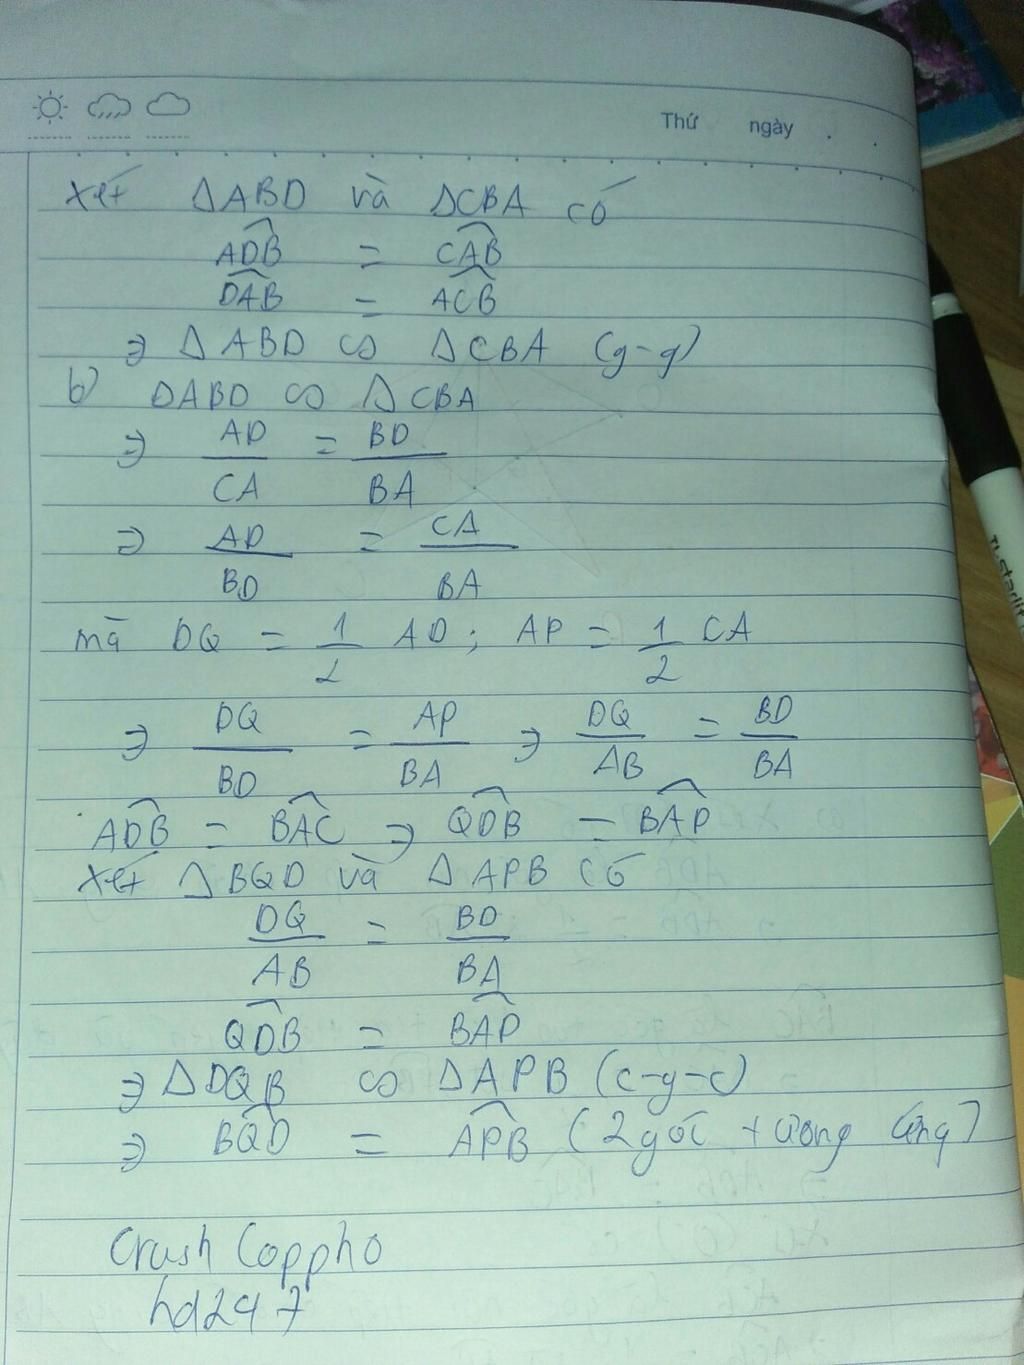 Thứ ngày .
Xét ΔABD và ΔCBA có
∠ADB = ∠CAB
∠DAB = ∠ACB
⇒ ΔABD ∽ ΔCBA (g-g)
b) ΔABD ∽ ΔCBA
⇒ AD/CA = BD/BA
⇒ AD/BD = CA/BA
mà DQ = 1/2 AD ; AP = 1/2 CA
⇒ DQ/BD = AP/BA ⇒ DQ/AB = BD/BA
∠ADB = ∠BAC ⇒ ∠QDB = ∠BAP
Xét ΔBQD và ΔAPB có
DQ/AB = BD/BA
∠QDB = ∠BAP
⇒ ΔDQB ∽ ΔAPB (c-g-c)
⇒ ∠BQD = ∠APB (2 góc tương ứng)
Crush Coppho
hd247